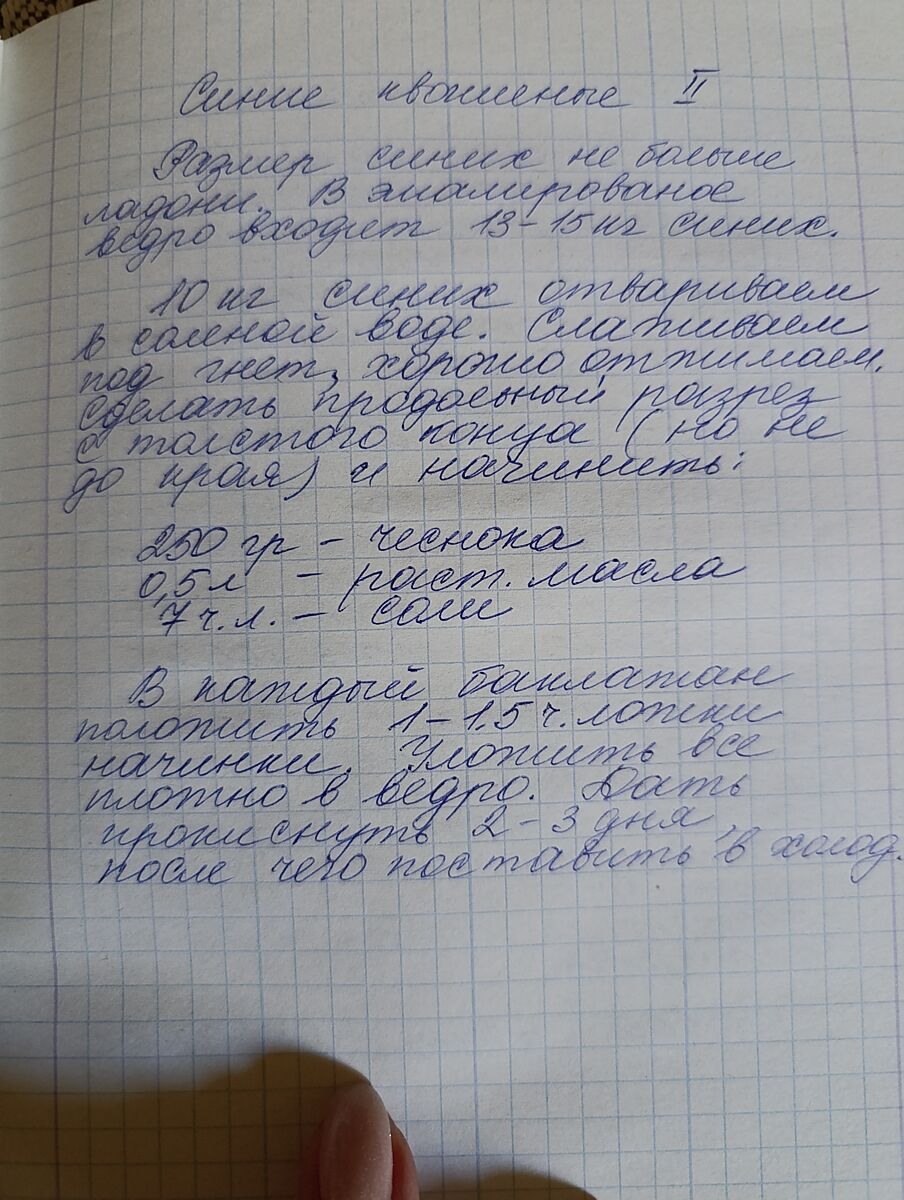 Синие квашеные II
Размер синих не больше
ладони. В эмалированое
ведро входит 13-15 кг синих.
10 кг синих отвариваем
в соленой воде. Слаживаем
под гнет, хорошо отжимаем.
Сделать продольный разрез
с толстого конца (но не
до края) и начинить:
250 гр - чеснока
0,5 л - раст. масла
7 ч.л. - соли
В каждый баклажан
положить 1-1,5 ч. ложки
начинки. Уложить все
плотно в ведро. Дать
прокиснуть 2-3 дня,
после чего поставить в холод.